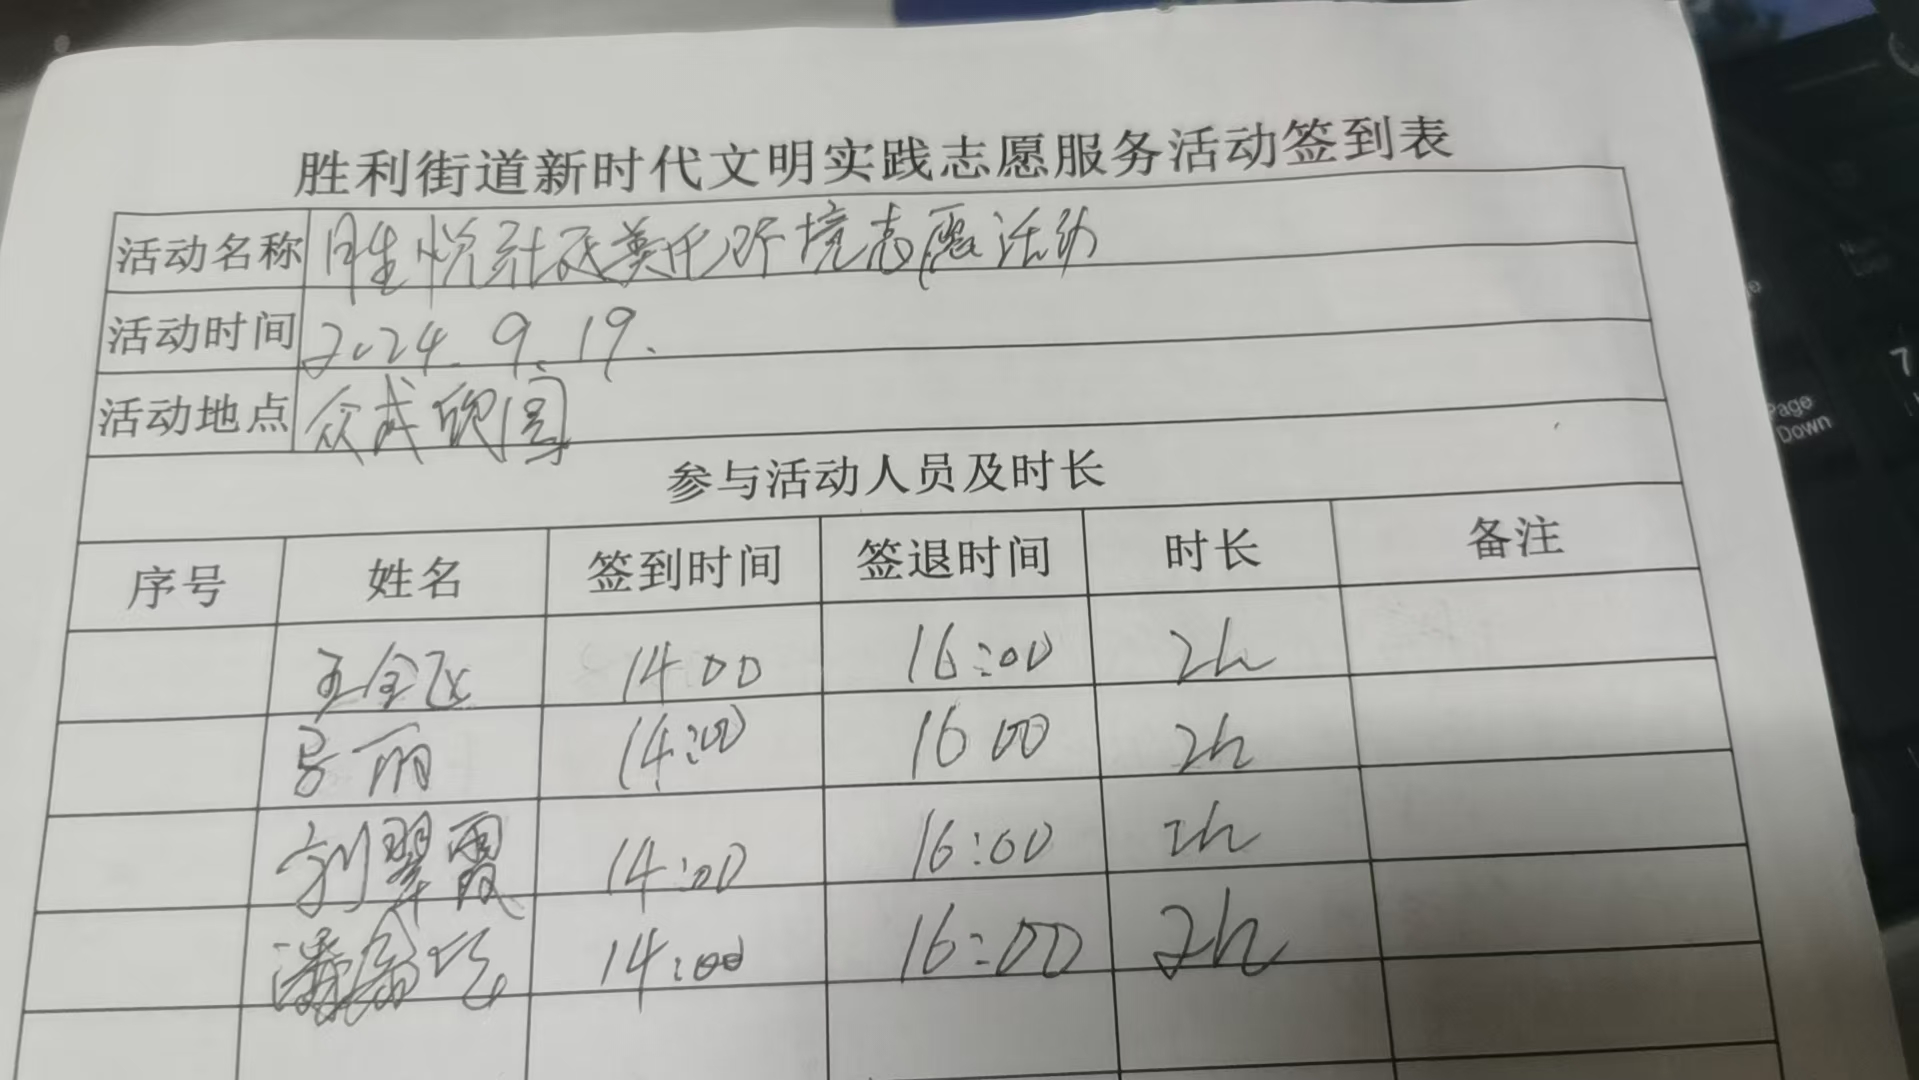 胜利街道新时代文明实践志愿服务活动签到表
活动名称 美化环境志愿活动
活动时间 2024.9.19.
活动地点 众成欣园
参与活动人员及时长
序号 姓名 签到时间 签退时间 时长 备注
王全飞 14:00 16:00 2h
丽 14:00 16:00 2h
刘翠霞 14:00 16:00 2h
潘 14:00 16:00 2h
Page
Down
7